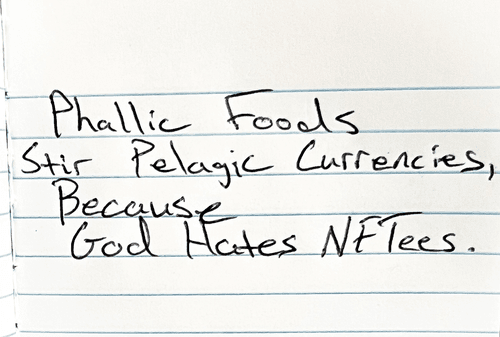 Phallic Foods
Stir Pelagic Currencies,
Because
God Hates NFTees.